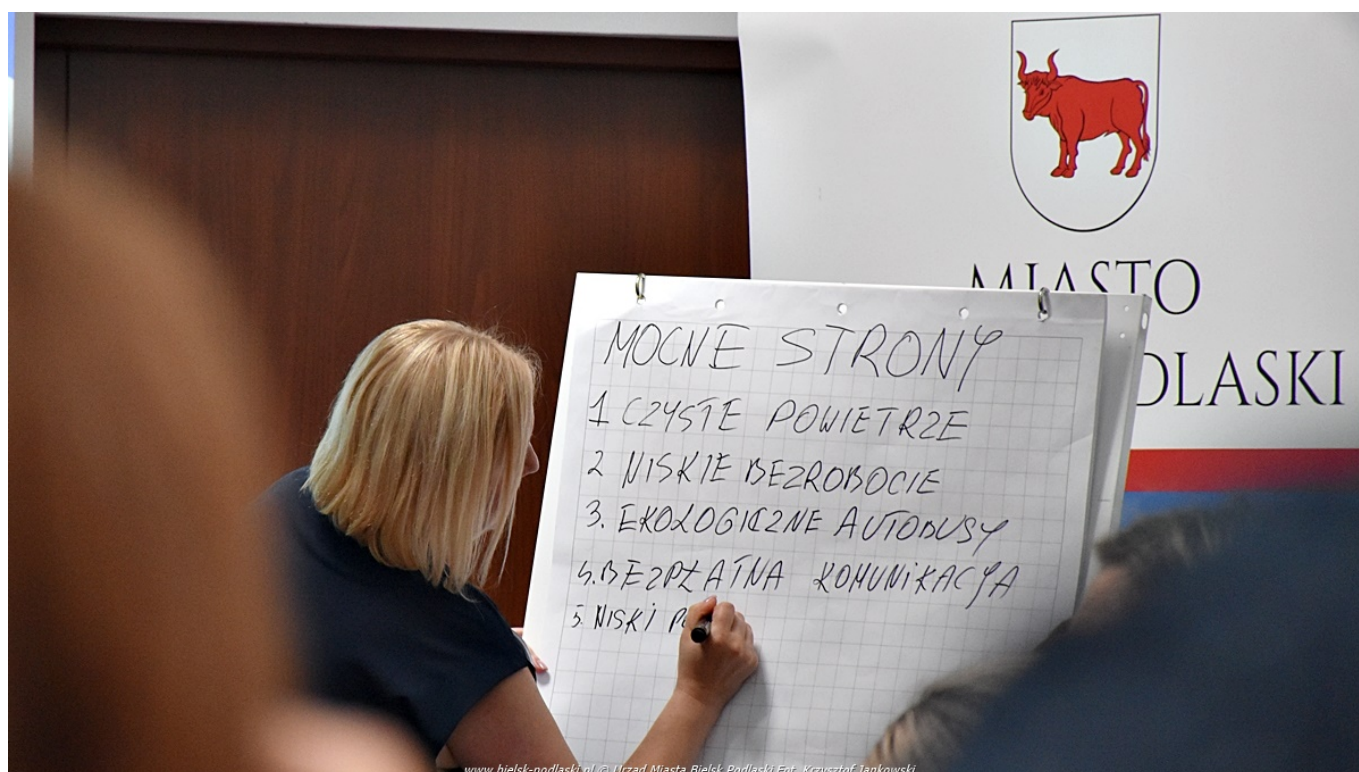 MIASTO
DLASKI
MOCNE STRONY
1 CZYSTE POWIETRZE
2 NISKIE BEZROBOCIE
3. EKOLOGICZNE AUTOBUSY
4. BEZPŁATNA KOMUNIKACJA
5. NISKI P
www.bielsk-podlaski.pl © Urząd Miasta Bielsk Podlaski Fot. Krzysztof Jankowski